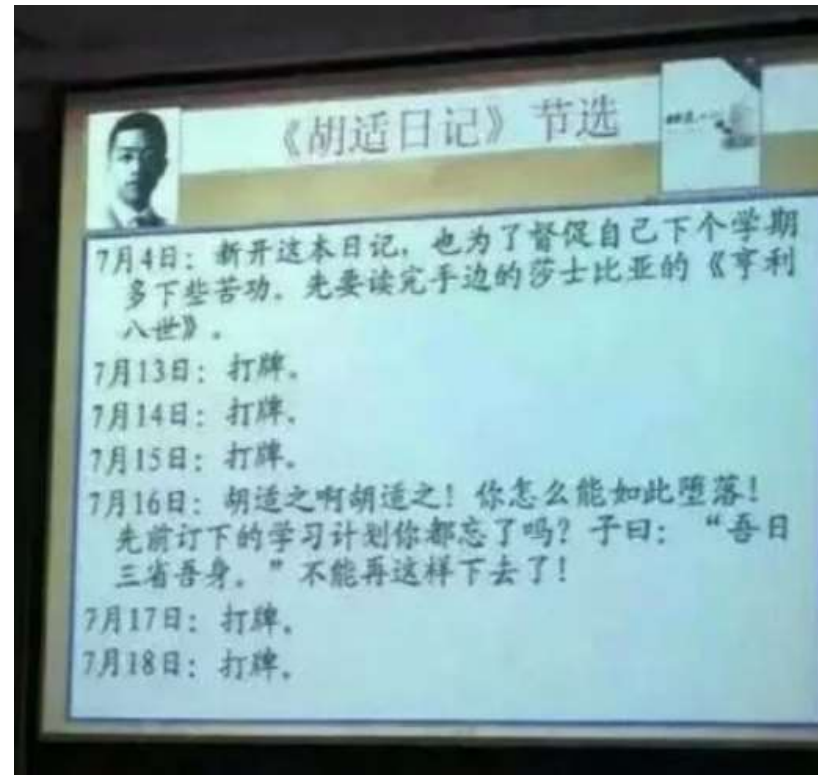 《胡适日记》节选
7月4日：新开这本日记，也为了督促自己下个学期
多下些苦功。先要读完手边的莎士比亚的《亨利
八世》。
7月13日：打牌。
7月14日：打牌。
7月15日：打牌。
7月16日：胡适之啊胡适之！你怎么能如此堕落！
先前订下的学习计划你都忘了吗？子曰：“吾日
三省吾身。”不能再这样下去了！
7月17日：打牌。
7月18日：打牌。